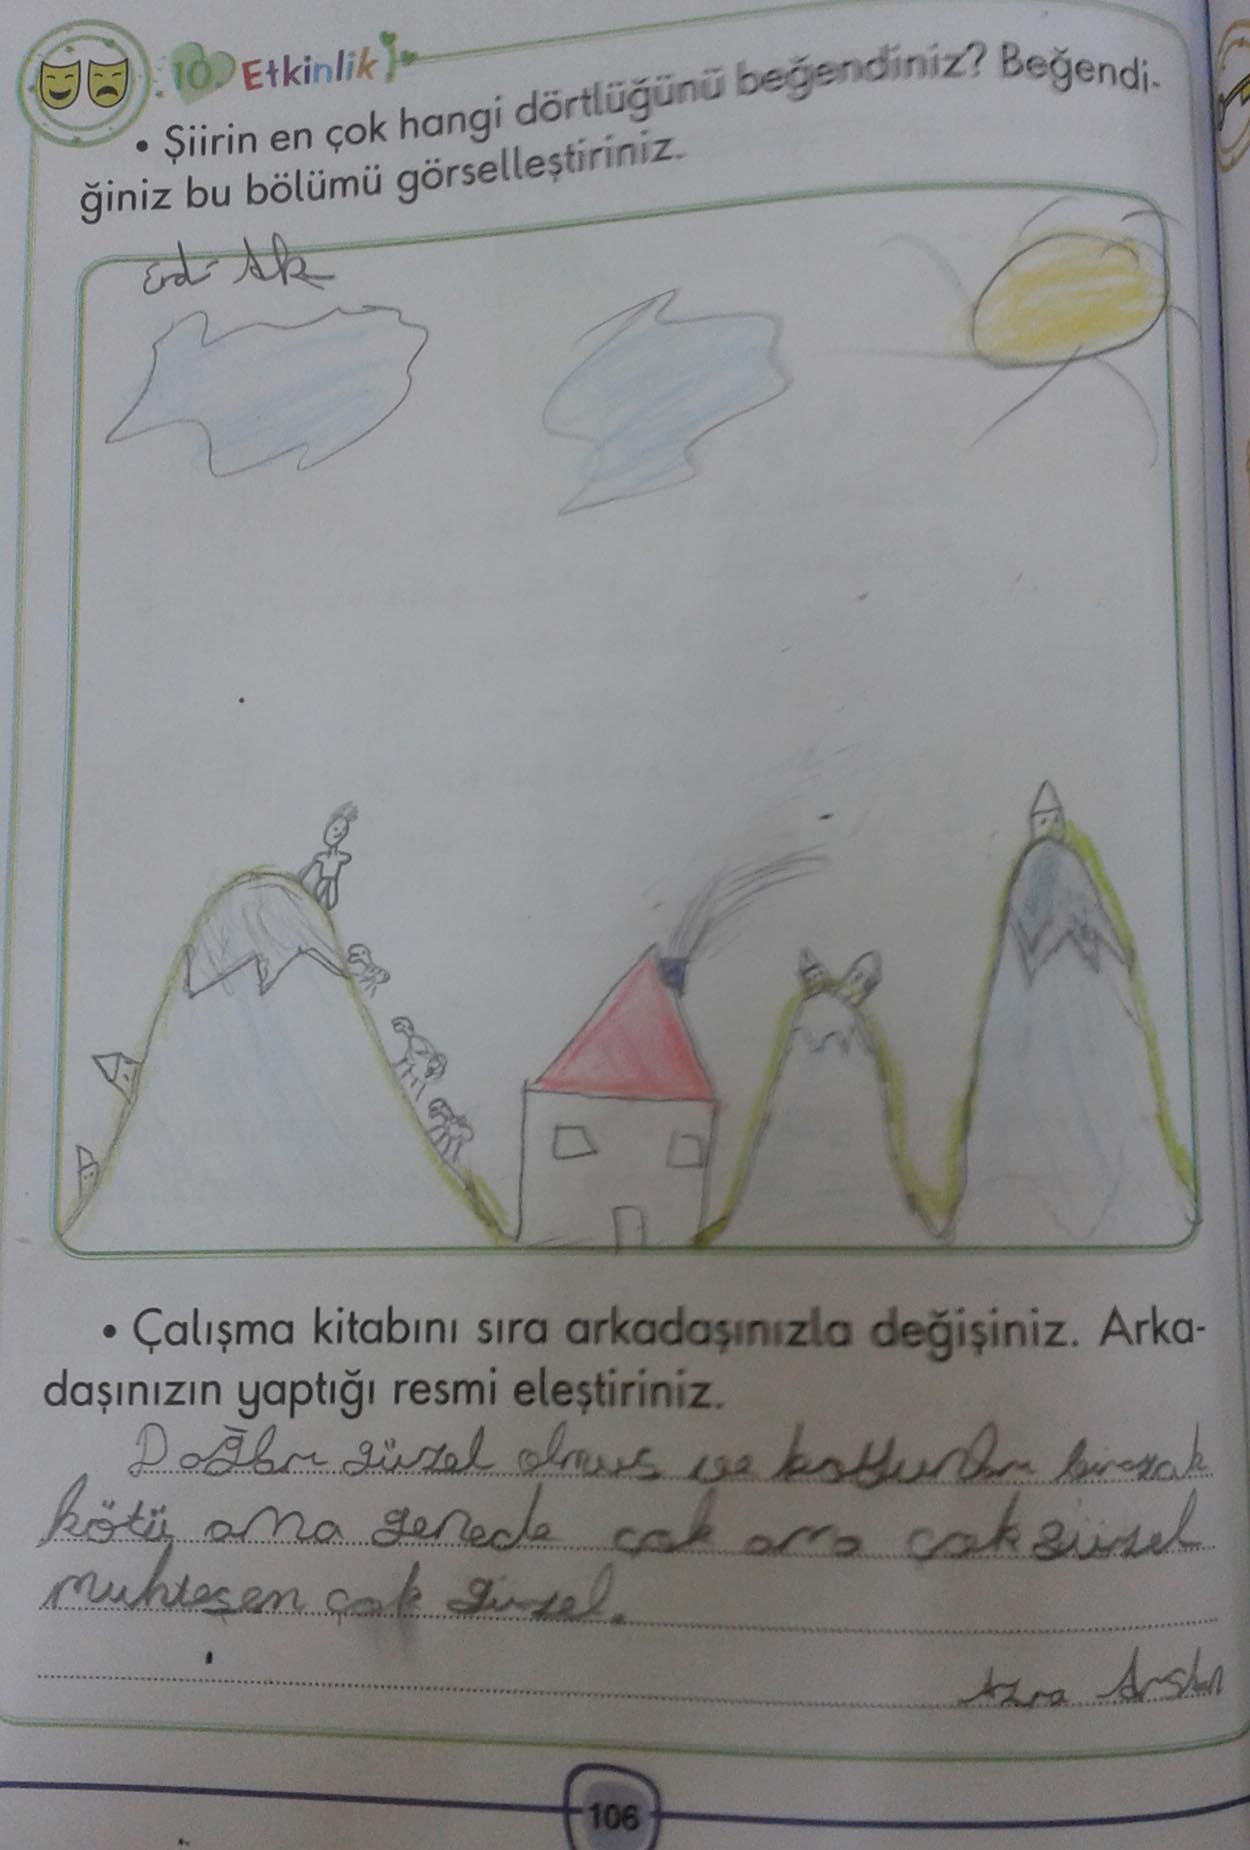 10. Etkinlik
• Şiirin en çok hangi dörtlüğünü beğendiniz? Beğendi-
ğiniz bu bölümü görselleştiriniz.
Erdi Ak
• Çalışma kitabını sıra arkadaşınızla değişiniz. Arka-
daşınızın yaptığı resmi eleştiriniz.
Dağlar güzel olmuş ve koyunlar birazcık
kötü ama genede çok ama çok güzel
muhteşen çok güzel.
Azra Arslan
106